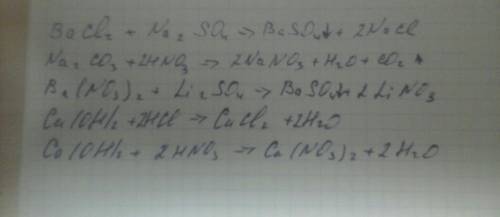 BaCl2 + Na2SO4 → BaSO4↓ + 2NaCl
Na2CO3 + 2HNO3 → 2NaNO3 + H2O + CO2↑
Ba(NO3)2 + Li2SO4 → BaSO4↓ + 2LiNO3
Cu(OH)2 + 2HCl → CuCl2 + 2H2O
Ca(OH)2 + 2HNO3 → Ca(NO3)2 + 2H2O